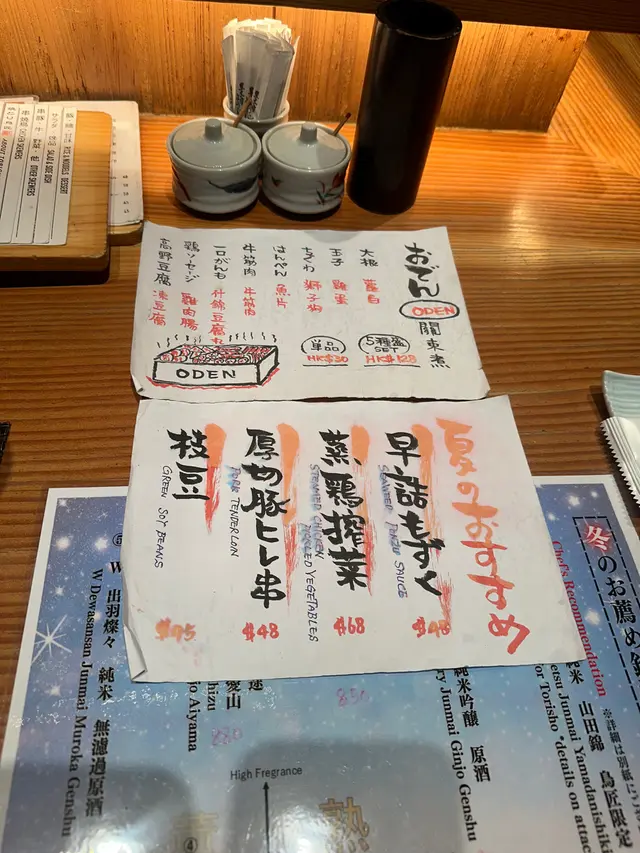 RICE & NOODLES DESSERT
SALAD & SIDE DISH
OTHER SKEWERS
CHICKEN SKEWERS
おでん
ODEN
關東煮
5種盛
SET
HK$128
単品
HK$30
大根 蘿白
玉子 雞蛋
ちくわ 獅子狗
はんぺん 魚片
牛筋肉 牛筋肉
一口がんも 什錦豆腐丸
鶏ソーセージ 雞肉腸
高野豆腐 凍豆腐
ODEN
夏のおすすめ
早詰もずく
SEAWEED PONZU SAUCE
$48
蒸し鶏搾菜
STEAMED CHICKEN
PICKLED VEGETABLES
$68
厚切豚ヒレ串
PORK TENDERLOIN
$48
枝豆
GREEN SOY BEANS
$45
冬のお薦め
Chef's Recommendation
※詳細は別紙に
純米 山田錦 鳥匠限定
Junmai Yamadanishiki
for Torisho *details on attac
純米吟醸 原酒
Junmai Ginjo Genshu
850
愛山
Aiyama
880
⑤
出羽燦々 純米 無濾過原酒
W Dewasansan Junmai Muroka Genshu
High Fregrance
熟
④